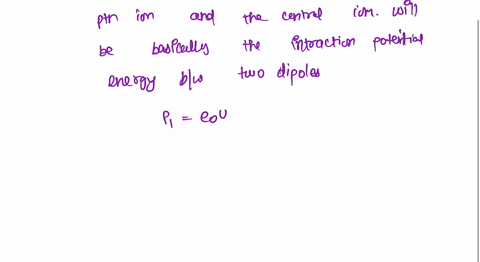 pth ion and the central ion. will
be basically the intraction potential
energy b/w two dipoles
P₁ = e₀u